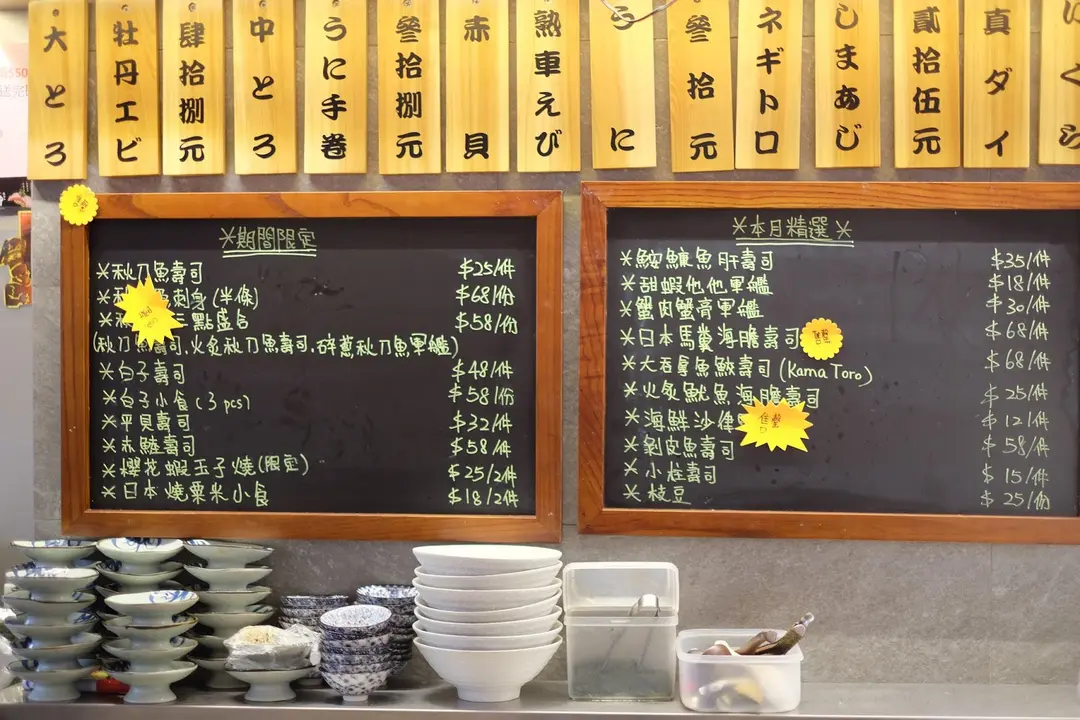 大とろ
牡丹エビ
肆拾捌元
中とろ
うに手巻
參拾捌元
赤貝
熟車えび
うに
參拾元
ネギトロ
しまあじ
貳拾伍元
真ダイ
いくら
售罄
*期間限定*
*秋刀魚壽司 $25/件
刺身(半條) $68/份
三點盛合 $58/份
(秋刀魚壽司,火炙秋刀魚壽司,碎蔥秋刀魚軍艦)
*白子壽司 $48/件
*白子小食(3 pcs) $58/份
*平貝壽司 $32/件
*赤鯥壽司 $58/件
*櫻花蝦玉子燒(限定) $25/2件
*日本燒粟米小食 $18/2件
*本月精選*
*鮟鱇魚肝壽司 $35/件
*甜蝦他他軍艦 $18/件
*蟹肉蟹膏軍艦 $30/件
*日本馬糞海膽壽司 $68/件
售罄
*大吞拿魚鮫壽司(Kama Toro) $68/件
*火炙魷魚海膽壽司 $25/件
*海鮮沙律 $12/件
售罄
*剝皮魚壽司 $58/件
*小柱壽司 $15/件
*枝豆 $25/份